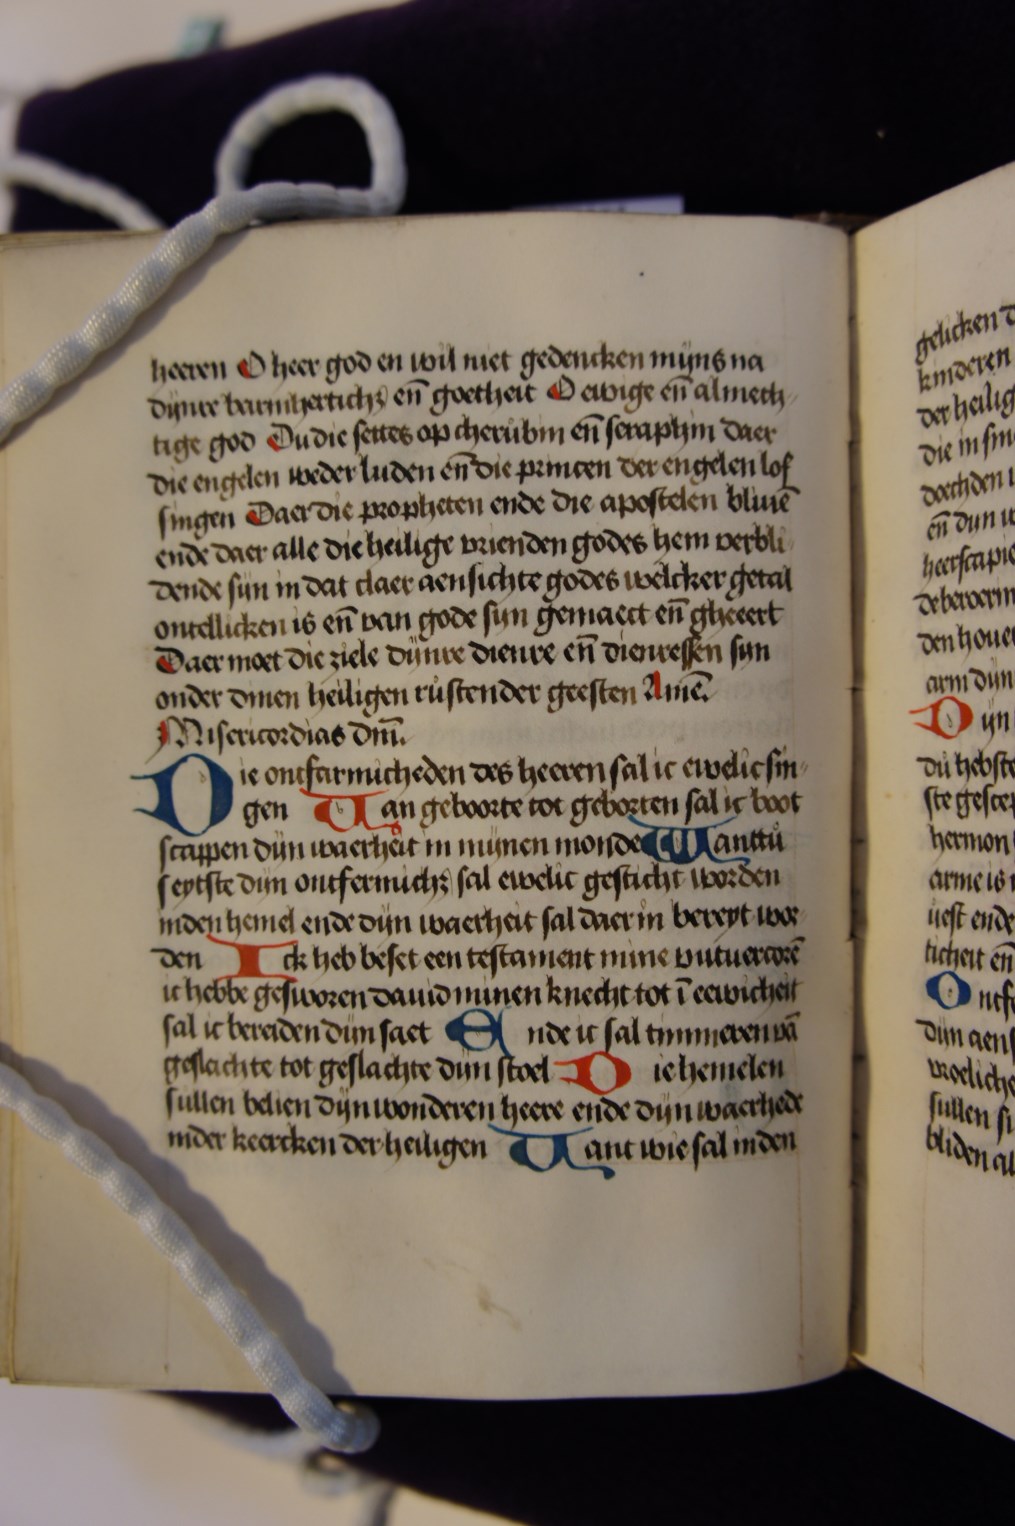 heeren O heer god en wil niet gedencken mijns na
dijnre barmhertichz en̄ goetheit O ewige en̄ almech
tige god Du die settes op cherubin en̄ seraphin daer
die engelen weder luden en̄ die princen der engelen lof
singen Daer die propheten ende die apostelen bliuē
ende daer alle die heilige vrienden godes hem verbli
dende sijn in dat claer aensichte godes welcker getal
ontellicken is en̄ van gode sijn gemaect en̄ gheeert
Daer moet die ziele dijnre dienre en̄ dienressen sijn
onder dinen heiligen rustender geesten Amē.
Misericordias dnī.
Die ontfarmicheden des heeren sal ic ewelic sin
gen Uan geboorte tot geborten sal ic boot
scappen dijn waerheit in mijnen monde Want tu
seytste dijn ontfermichz sal ewelic gesticht worden
inden hemel ende dijn waerheit sal daer in bereyt wor
den Ick heb beset een testament mine wtuercorē
ic hebbe gesworen dauid minen knecht tot ī eewicheit
sal ic bereiden dijn saet Ende ic sal timmeren vā
geslachte tot geslachte dijn stoel Die hemelen
sullen belien dijn wonderen heere ende dijn waerhede
inder keercken der heiligen Uant wie sal inden
gelicken
kinderen
der heilig
die in sin
en̄ dijn
heerscapie
den
arm dijn
Dijn
du hebste
ste
hermon
arme is
uest ende
ticheit en̄
Ontf
dijn aens
vroeliche
sullen
bliden al